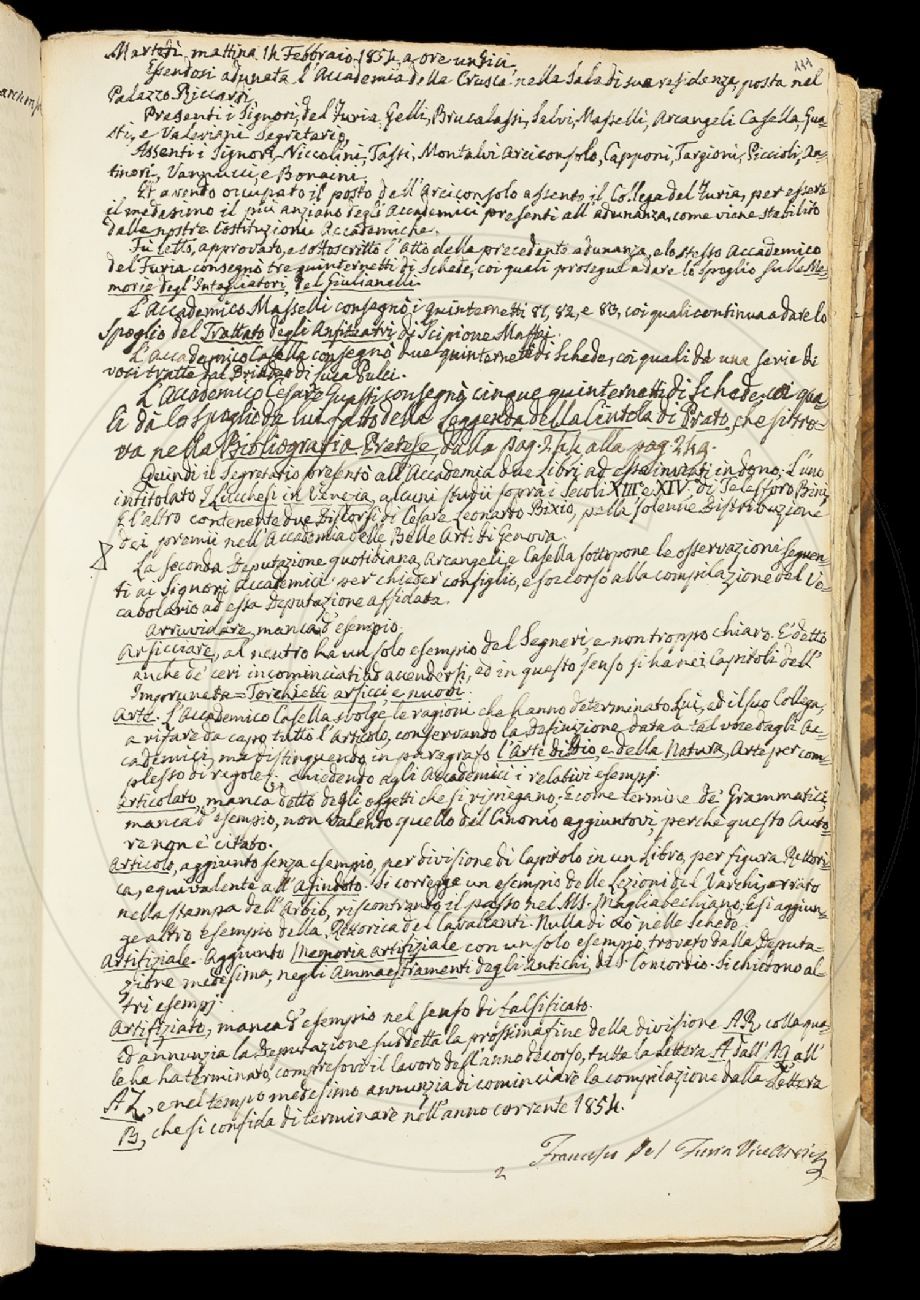 111
Martedì mattina 14 Febbraio 1854, a ore undici.
Essendosi adunata l'Accademia della Crusca nella Sala di sua residenza, posta nel
Palazzo Riccardi
Presenti i Signori, del Furia, Gelli, Brucalassi, Salvi, Masselli, Arcangeli, Casella, Gua-
sti, e Valeriani Segretario,
Assenti i Signori, Niccolini, Tassi, Montalvi Arciconsolo, Capponi, Targioni, Piccioli, An-
tinori, Vannucci, e Bonaini,
Et avendo occupato il posto dell'Arciconsolo assente, il Collega del Furia, per essere
il medesimo il più anziano degli Accademici presenti all'adunanza, come viene stabilito
dalle nostre Costituzioni Accademiche.
Fu letto, approvato, e sottoscritto l'Atto della precedente adunanza, e lo stesso Accademico
del Furia consegnò tre quinternetti di Schede, coi quali prosegue a dare lo Spoglio sulle Me-
morie degl'Intagliatori, del Giulianelli.
L'Accademico Masselli consegnò i quinternetti 81, 82, e 83, coi quali continua a dare lo
Spoglio del Trattato degli Anfiteatri, di Scipione Maffei.
L'Accademico Casella consegnò due quinternetti di Schede, coi quali dà una serie di
voci tratte dal Driadeo di Luca Pulci.
L'Accademico Cesare Guasti consegnò cinque quinternetti di Schede, coi qua-
li dà lo Spoglio da lui fatto della Leggenda della Cintola di Prato, che si tro-
va nella Bibliografia Pratese dalla pag. 244 alla pag. 249.
Quindi il Segretario presentò all'Accademia due Libri ad essa inviati in dono, L'uno
intitolato I Lucchesi in Venezia, alcuni studii sopra i Secoli XIII e XIV, di Telesforo Bini,
E l'altro contenente due Discorsi di Cesare Leonardo Bixio, pella solenne Distribuzione
dei premii nell'Accademia delle Belle Arti di Genova.
La seconda Deputazione quotidiana, Arcangeli e Casella sottopone le osservazioni seguen-
ti ai Signori Accademici per chieder consiglio, e soccorso alla compilazione del Vo-
cabolario ad essa Deputazione affidata.
Arruvidare, manca d'esempio.
Arsicciare, al neutro ha un solo esempio del Segneri, e non troppo chiaro. È detto
anche de' ceri incominciati ad accendersi, ed in questo senso si ha nei Capitoli dell'
Impruneta = Torchietti arsicci, e nuovi.
Arte. L'Accademico Casella svolge le ragioni che hanno determinato Lui, ed il suo Collega,
a rifare da capo tutto l'Articolo, conservando la Definizione data a tal voce dagli Ac-
cademici, ma distinguendo in paragrafo l'Arte di Dio, e della Natura, Arte per com-
plesso di regole. Chiedendo agli Accademici i relativi esempj.
Articolato, manca detto degli oggetti che si ripiegano. E come termine de' Grammatici,
manca d'esempio, non valendo quello del Cinonio aggiuntovi, perchè questo Auto-
re non è citato.
Articolo, aggiunto senza esempio, per divisione di Capitolo in un Libro, per figura Rettori-
ca, equivalente all'Asindoto. Si corregge un esempio delle Lezioni del Varchi, errato
nella stampa dell'Arbib, riscontrando il passo nel MS. Magliabechiano, e si aggiun-
ge altro esempio della Rettorica del Cavalcanti. Nulla di ciò nelle Schede.
Artifiziale. Aggiunto Memoria artifiziale con un solo esempio, trovato dalla Deputa-
zione medesima, negli Ammaestramenti degli Antichi, di S. Concordio. Si chiedono al-
tri esempj.
Artifiziato, manca d'esempio nel senso di falsificato.
Ed annunzia la Deputazione suddetta la prossima fine della divisione AR, colla qua-
le ha terminato, compresovi il lavoro dell'anno decorso, tutta la Lettera A dall'AG all'
AZ, e nel tempo medesimo annunzia di cominciare la compilazione dalla Lettera
B, che si confida di terminare nell'anno corrente 1854.
Francesco Del Furia Vice Arcic.